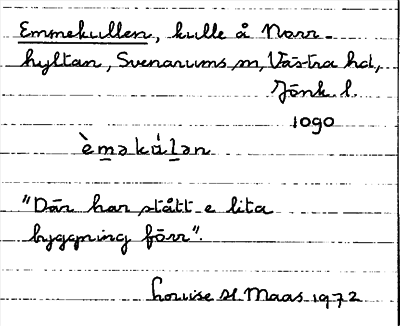 Emmekullen, kulle å Norr-
hyltan, Svenarums sn, Västra hd,
Jönk. l.
1090
èməkúlən
"Där har stått e lita
byggning förr".
Louise H Maas 1972